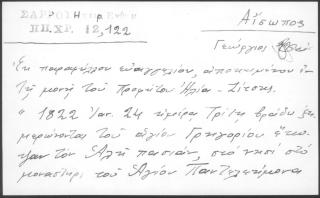 ΣΑΡΡΟΣ
ΠΠ.ΧΡ. 12,122
Αἴσωπος
Γεώργιος
Ἐκ παραφύλλου εὐαγγελίου, ἀποκειμένου ἐν
τῇ μονῇ τοῦ Προφήτου Ἠλία - Ζίτσης.
" 1822 Ἰαν. 24 ἡμέρα Τρίτῃ βράδυ ξη-
μερώνοντας τοῦ ἁγίου Γρηγορίου ἐσκό-
τωσαν τὸν Ἀλῆ πασιᾶν, στὸ νησὶ στὸ
μοναστήρι τοῦ Ἁγίου Παντελεήμονα